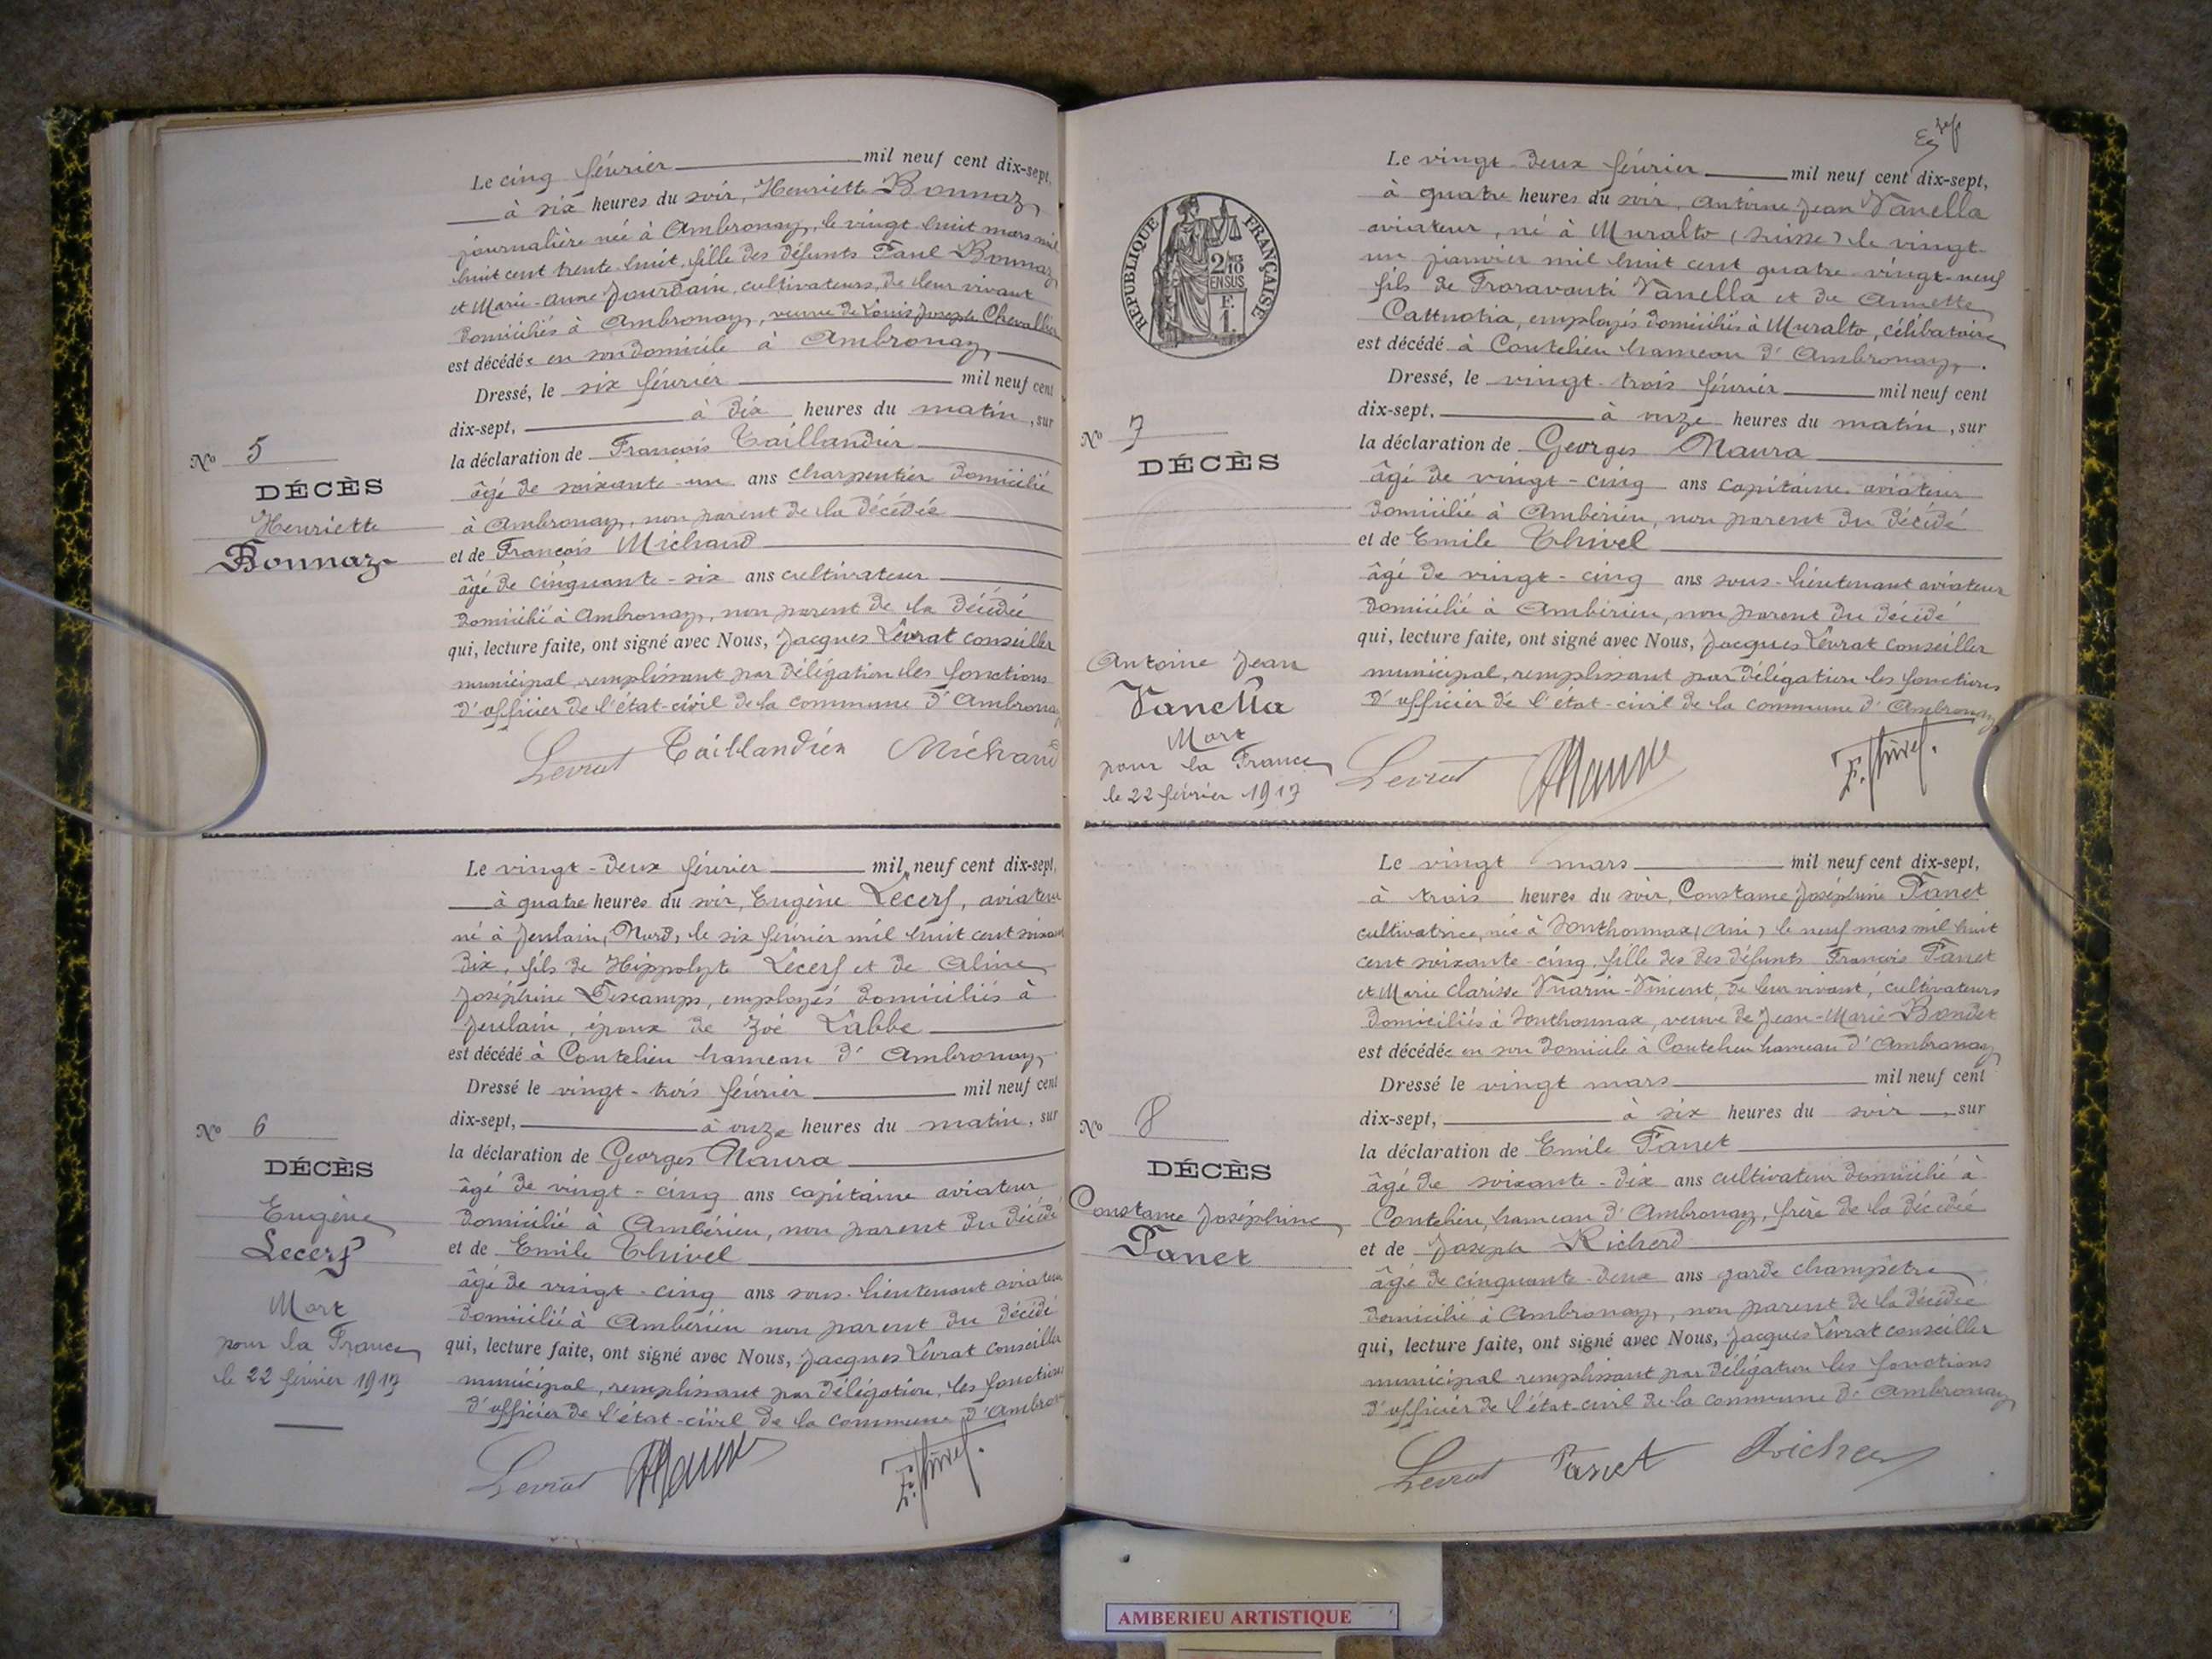 Le cinq février mil neuf cent dix-sept,
à six heures du soir, Henriette Bonnaz,
journalière née à Ambronay, le vingt-huit mars mil
huit cent trente-huit, fille des défunts Paul Bonnaz
et Marie-Anne Jourdain, cultivateurs, de leur vivant
domiciliés à Ambronay, veuve de Louis Joseph Chevallier
est décédée en son domicile à Ambronay,
Dressé, le six février mil neuf cent
dix-sept, à dix heures du matin, sur
la déclaration de François Taillandier
âgé de soixante-un ans charpentier domicilié
à Ambronay, non parent de la décédée
et de François Michaud
âgé de cinquante-six ans cultivateur
domicilié à Ambronay, non parent de la décédée
qui, lecture faite, ont signé avec Nous, Jacques Levrat conseiller
municipal, remplissant par délégation les fonctions
d'officier de l'état-civil de la commune d'Ambronay
Levrat Taillandier Michaud
No 5
DÉCÈS
Henriette
Bonnaz
Le vingt-deux février mil neuf cent dix-sept,
à quatre heures du soir, Eugène Lecerf, aviateur
né à Jenlain, Nord, le six février mil huit cent soixante
dix, fils de Hippolyte Lecerf et de Aline
Joséphine Descamps, employés domiciliés à
Jenlain, époux de Zoé Labbe
est décédé à Coutelieu hameau d'Ambronay,
Dressé le vingt-trois février mil neuf cent
dix-sept, à onze heures du matin, sur
la déclaration de Georges Naura
âgé de vingt-cinq ans capitaine aviateur
domicilié à Ambérieu, non parent du décédé
et de Emile Thivel
âgé de vingt-cinq ans sous-lieutenant aviateur
domicilié à Ambérieu non parent du décédé
qui, lecture faite, ont signé avec Nous, Jacques Levrat conseiller
municipal, remplissant par délégation, les fonctions
d'officier de l'état-civil de la commune d'Ambronay
Levrat E. Thivel.
No 6
DÉCÈS
Eugène
Lecerf
Mort
pour la France
le 22 février 1917
RÉPUBLIQUE FRANÇAISE
EN SUS
Le vingt-deux février mil neuf cent dix-sept,
à quatre heures du soir, Antoine Jean Vanella
aviateur, né à Muralto (Suisse) le vingt-
un janvier mil huit cent quatre-vingt-neuf
fils de Vanella et de Annette
employés domiciliés à Muralto, célibataire
est décédé à Coutelieu hameau d'Ambronay.
Dressé, le vingt-trois février mil neuf cent
dix-sept, à onze heures du matin, sur
la déclaration de Georges Naura
âgé de vingt-cinq ans capitaine aviateur
domicilié à Ambérieu, non parent du décédé
et de Emile Thivel
âgé de vingt-cinq ans sous-lieutenant aviateur
domicilié à Ambérieu, non parent du décédé
qui, lecture faite, ont signé avec Nous, Jacques Levrat conseiller
municipal, remplissant par délégation les fonctions
d'officier de l'état-civil de la commune d'Ambronay
Levrat E. Thivel.
No 7
DÉCÈS
Antoine Jean
Vanella
Mort
pour la France
le 22 février 1917
Le vingt mars mil neuf cent dix-sept,
à trois heures du soir, Constance Joséphine Panet
cultivatrice, née à Sonthonnax (Ain) le neuf mars mil huit
cent soixante-cinq, fille des des défunts François Panet
et Marie Clarisse Vuarin-Vincent, de leur vivant, cultivateurs
domiciliés à Sonthonnax, veuve de Jean-Marie Bondet
est décédée en son domicile à Coutelieu hameau d'Ambronay
Dressé le vingt mars mil neuf cent
dix-sept, à six heures du soir, sur
la déclaration de Emile Panet
âgé de soixante-dix ans cultivateur domicilié à
Coutelieu, hameau d'Ambronay, frère de la décédée
et de Joseph Richerd
âgé de cinquante-deux ans garde champêtre
domicilié à Ambronay, non parent de la décédée
qui, lecture faite, ont signé avec Nous, Jacques Levrat conseiller
municipal remplissant par délégation les fonctions
d'officier de l'état-civil de la commune d'Ambronay
Levrat Panet
No 8
DÉCÈS
Constance Joséphine
Panet
AMBERIEU ARTISTIQUE